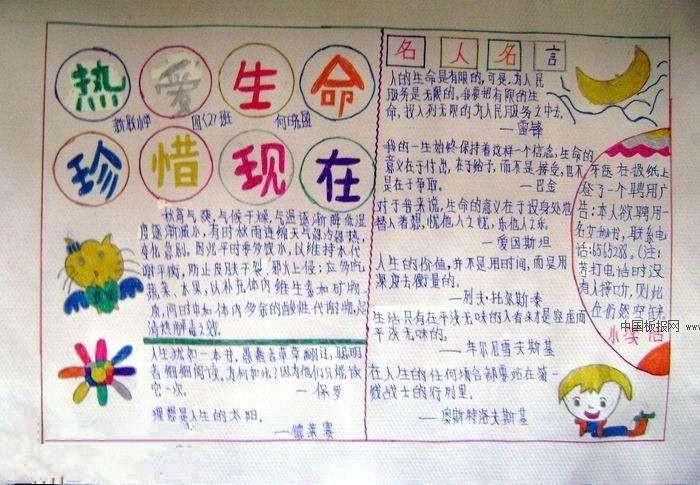 热爱生命
四(2)班
珍惜现在
秋高气爽,气候干燥,气温逐渐降低湿
度逐渐减小,有时秋雨连绵天气忽冷忽热,
变化急剧。因此平时要多饮水,以维持水代
谢平衡,防止皮肤干裂,邪火上侵;应多吃
蔬菜、水果,以补充体内维生素和矿物
质,同时中和体内多余的酸性代谢物,起
清热解毒之效
人生犹如一本书,愚蠢者草草翻过,聪明
者细细阅读。为何如此?因为他们只能读
它一次。
—保罗
理想是人生的太阳。
—德莱赛
名人名言
人的生命是有限的,可是,为人民
服务是无限的,我要把有限的生
命,投入到无限的为人民服务之中去。
—雷锋
我的一生始终保持着这样一个信念,生命的
意义在于付出,在于给予,而不是接受,也不
是在于争取。
—巴金
对于我来说,生命的意义在于设身处地
替人着想,忧他人之忧,乐他人之乐。
—爱因斯坦
人生的价值,并不是用时间,而是用
深度去衡量的。
—列夫·托尔斯泰
生活只有在平淡无味的人看来才是空虚而
平淡无味的。
—车尔尼雪夫斯基
在人生的任何场合都要站在第一
线战士的行列里。
—奥斯特洛夫斯基
牙医在报纸上
登了一个聘用广
告:本人欲聘用一
名女秘书,联系电
话:6565288。(注:
若打电话时没
有人接听,则此
位仍然空缺
小笑话
中国板报网 www